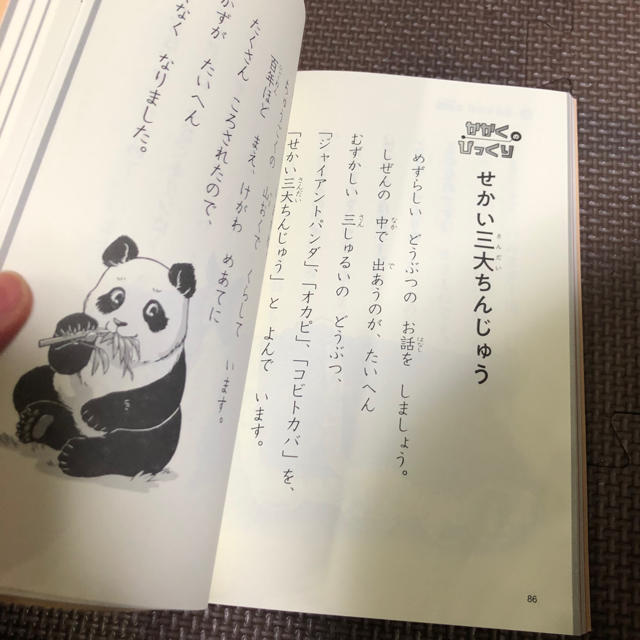 かがくのびっくり
せかい三大ちんじゅう
さんだい
めずらしい どうぶつの お話を しましょう。
はなし
しぜんの 中で 出あうのが たいへん
なか で
むずかしい 三しゅるいの どうぶつ、
さん
「ジャイアントパンダ」、「オカピ」、「コビトカバ」を、
「せかい三大ちんじゅう」と よんで います。
さんだい
86
山おくで くらして います。
まえ、けがわ めあてに
たくさん ころされたので、
かずが たいへん
なくなりました。